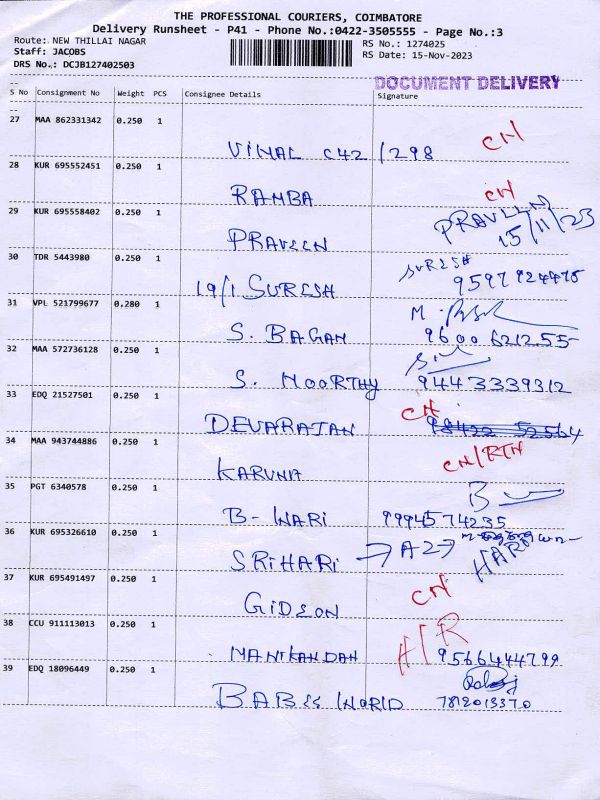 THE PROFESSIONAL COURIERS, COIMBATORE
Delivery Runsheet - P41 - Phone No.:0422-3505555 - Page No.:3
Route: NEW THILLAI NAGAR RS No.: 1274025
Staff: JACOBS RS Date: 15-Nov-2023
DRS No.: DCJB127402503
DOCUMENT DELIVERY
S No Consignment No Weight PCS Consignee Details Signature
27 MAA 862331342 0.250 1
VIMAL C42/298 CN
28 KUR 695552451 0.250 1
RAMBA CN
29 KUR 695558402 0.250 1
PRAVEEN PRAVEEN 15/11/23
30 TDR 5443980 0.250 1
19/1 SURESH SURESH 9597924475
31 VPL 521799677 0.280 1
S. BAGAM 9600621255
32 MAA 572736128 0.250 1
S. MOORTHY 9443339312
33 EDQ 21527501 0.250 1
DEVARAJAN CN 98422 52564
34 MAA 943744886 0.250 1
KARUNA CN/RTN
35 PGT 6340578 0.250 1
B- WARI 9994574235
36 KUR 695326610 0.250 1
SRIHARI → A2 → HARI
37 KUR 695491497 0.250 1
GIDEON CN
38 CCU 911113013 0.250 1
MANIKANDAN H/R 9566444799
39 EDQ 18096449 0.250 1
BABES WORLD 7812013370